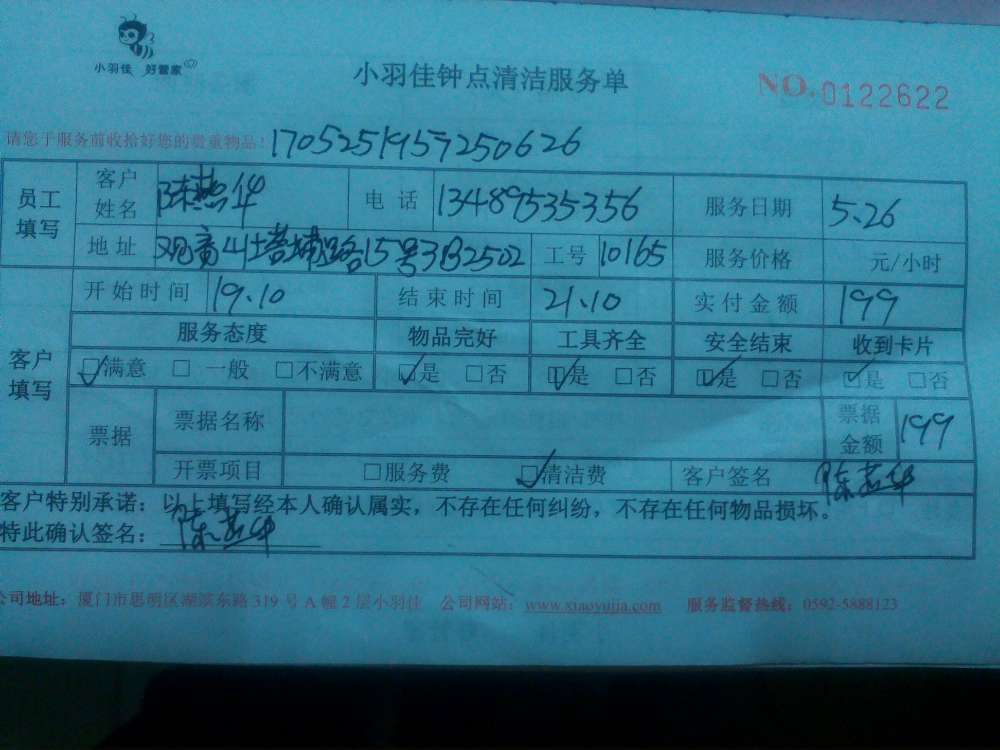 小羽佳 好管家
小羽佳钟点清洁服务单
NO.0122622
请您于服务前收拾好您的贵重物品！1705251957250626
员工填写 客户姓名 陈燕华 电话 13489535356 服务日期 5.26
地址 观音山塔埔路15号3B2502 工号 10165 服务价格 元/小时
客户填写 开始时间 19.10 结束时间 21.10 实付金额 199
服务态度 物品完好 工具齐全 安全结束 收到卡片
☑满意 □一般 □不满意 ☑是 □否 ☑是 □否 ☑是 □否 ☑是 □否
票据 票据名称 票据金额 199
开票项目 □服务费 ☑清洁费 客户签名 陈燕华
客户特别承诺：以上填写经本人确认属实，不存在任何纠纷，不存在任何物品损坏。
特此确认签名：陈燕华
公司地址：厦门市思明区湖滨东路319号A幢2层小羽佳 公司网站：www.xiaoyujia.com 服务监督热线：0592-5888123